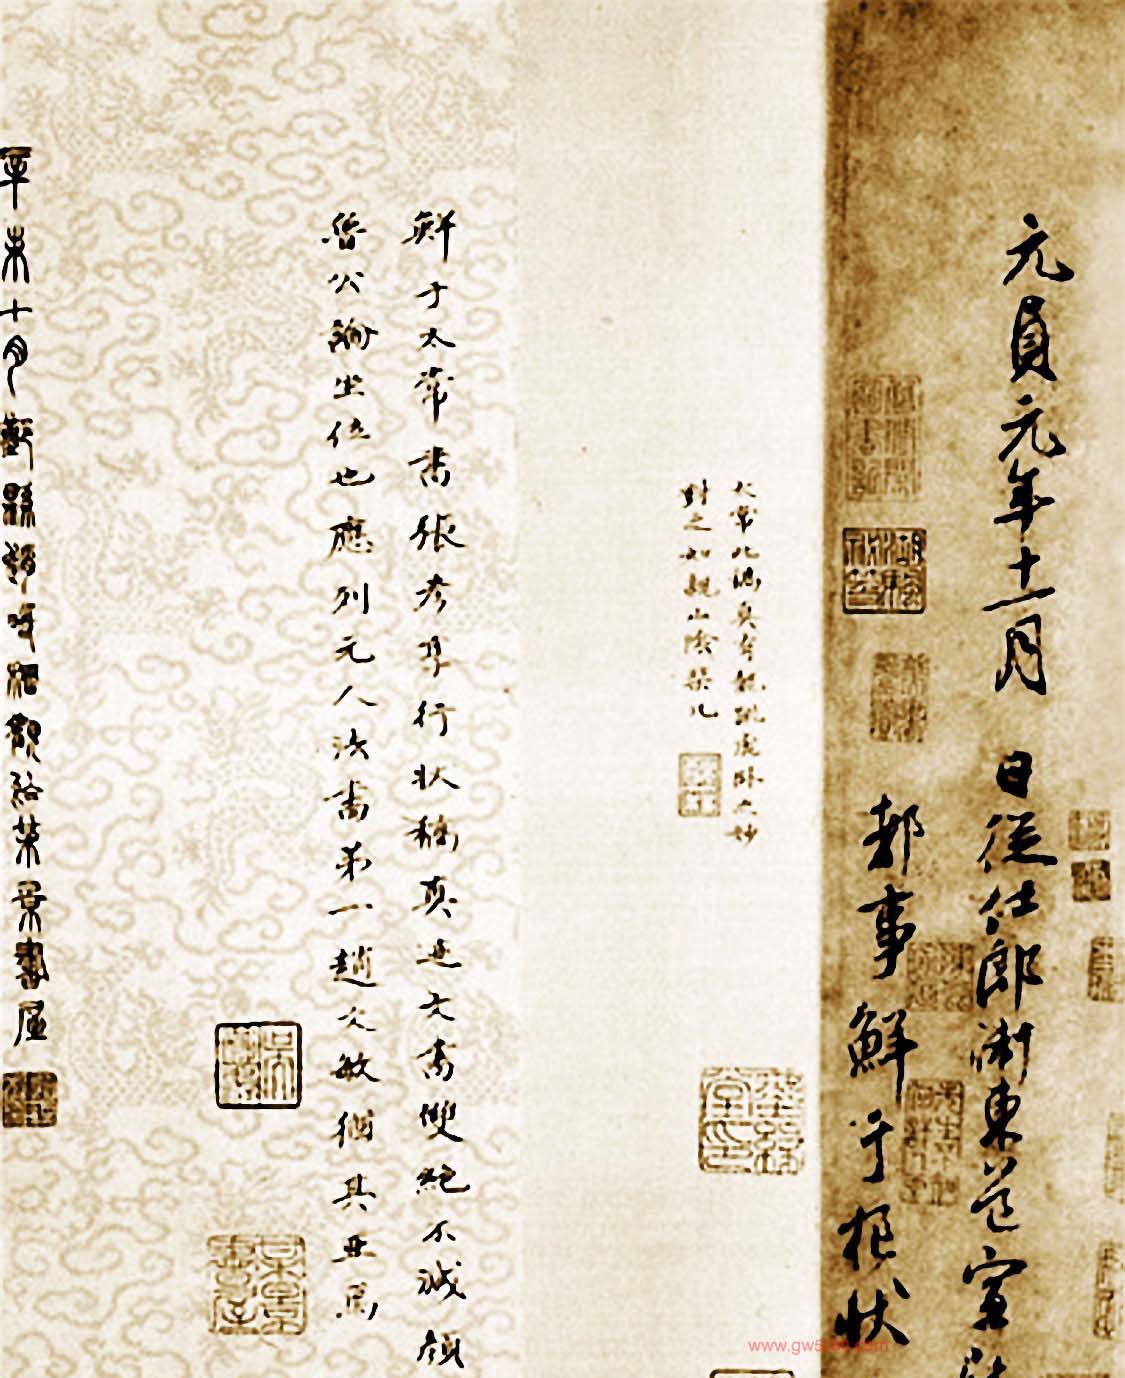 元貞元年十一月 日從仕郎浙東道宣
都事鮮于樞狀
太常此稿真有龍跳虎卧之妙
對之如親山陰棐几
鮮于太常書張彥享行狀稿真迹文書雙絕不減顏
魯公論坐位也應列元人法書第一趙文敏猶其亞焉
辛未十月鄞縣趙時棡觀於某景書屋